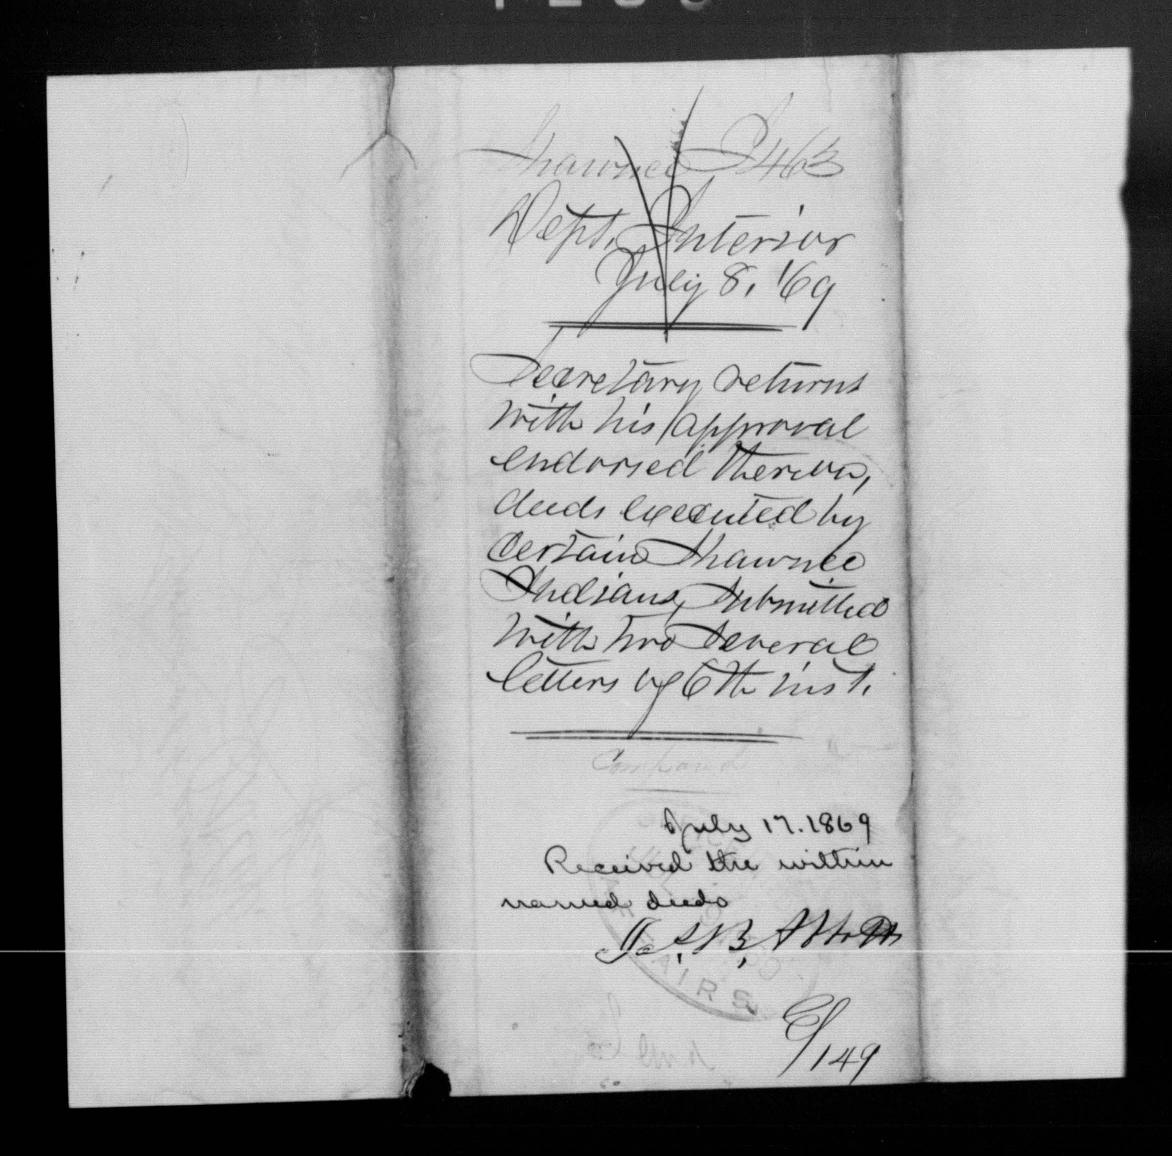 Shawnee I 463
Dept. Interior
July 8, '69
Secretary returns
with his approval
endorsed thereon,
deeds executed by
certain Shawnee
Indians, submitted
with two several
letters of 6th inst.
July 17. 1869
Received the within
named deeds
Jas. B. Abbott
AIRS
E/149